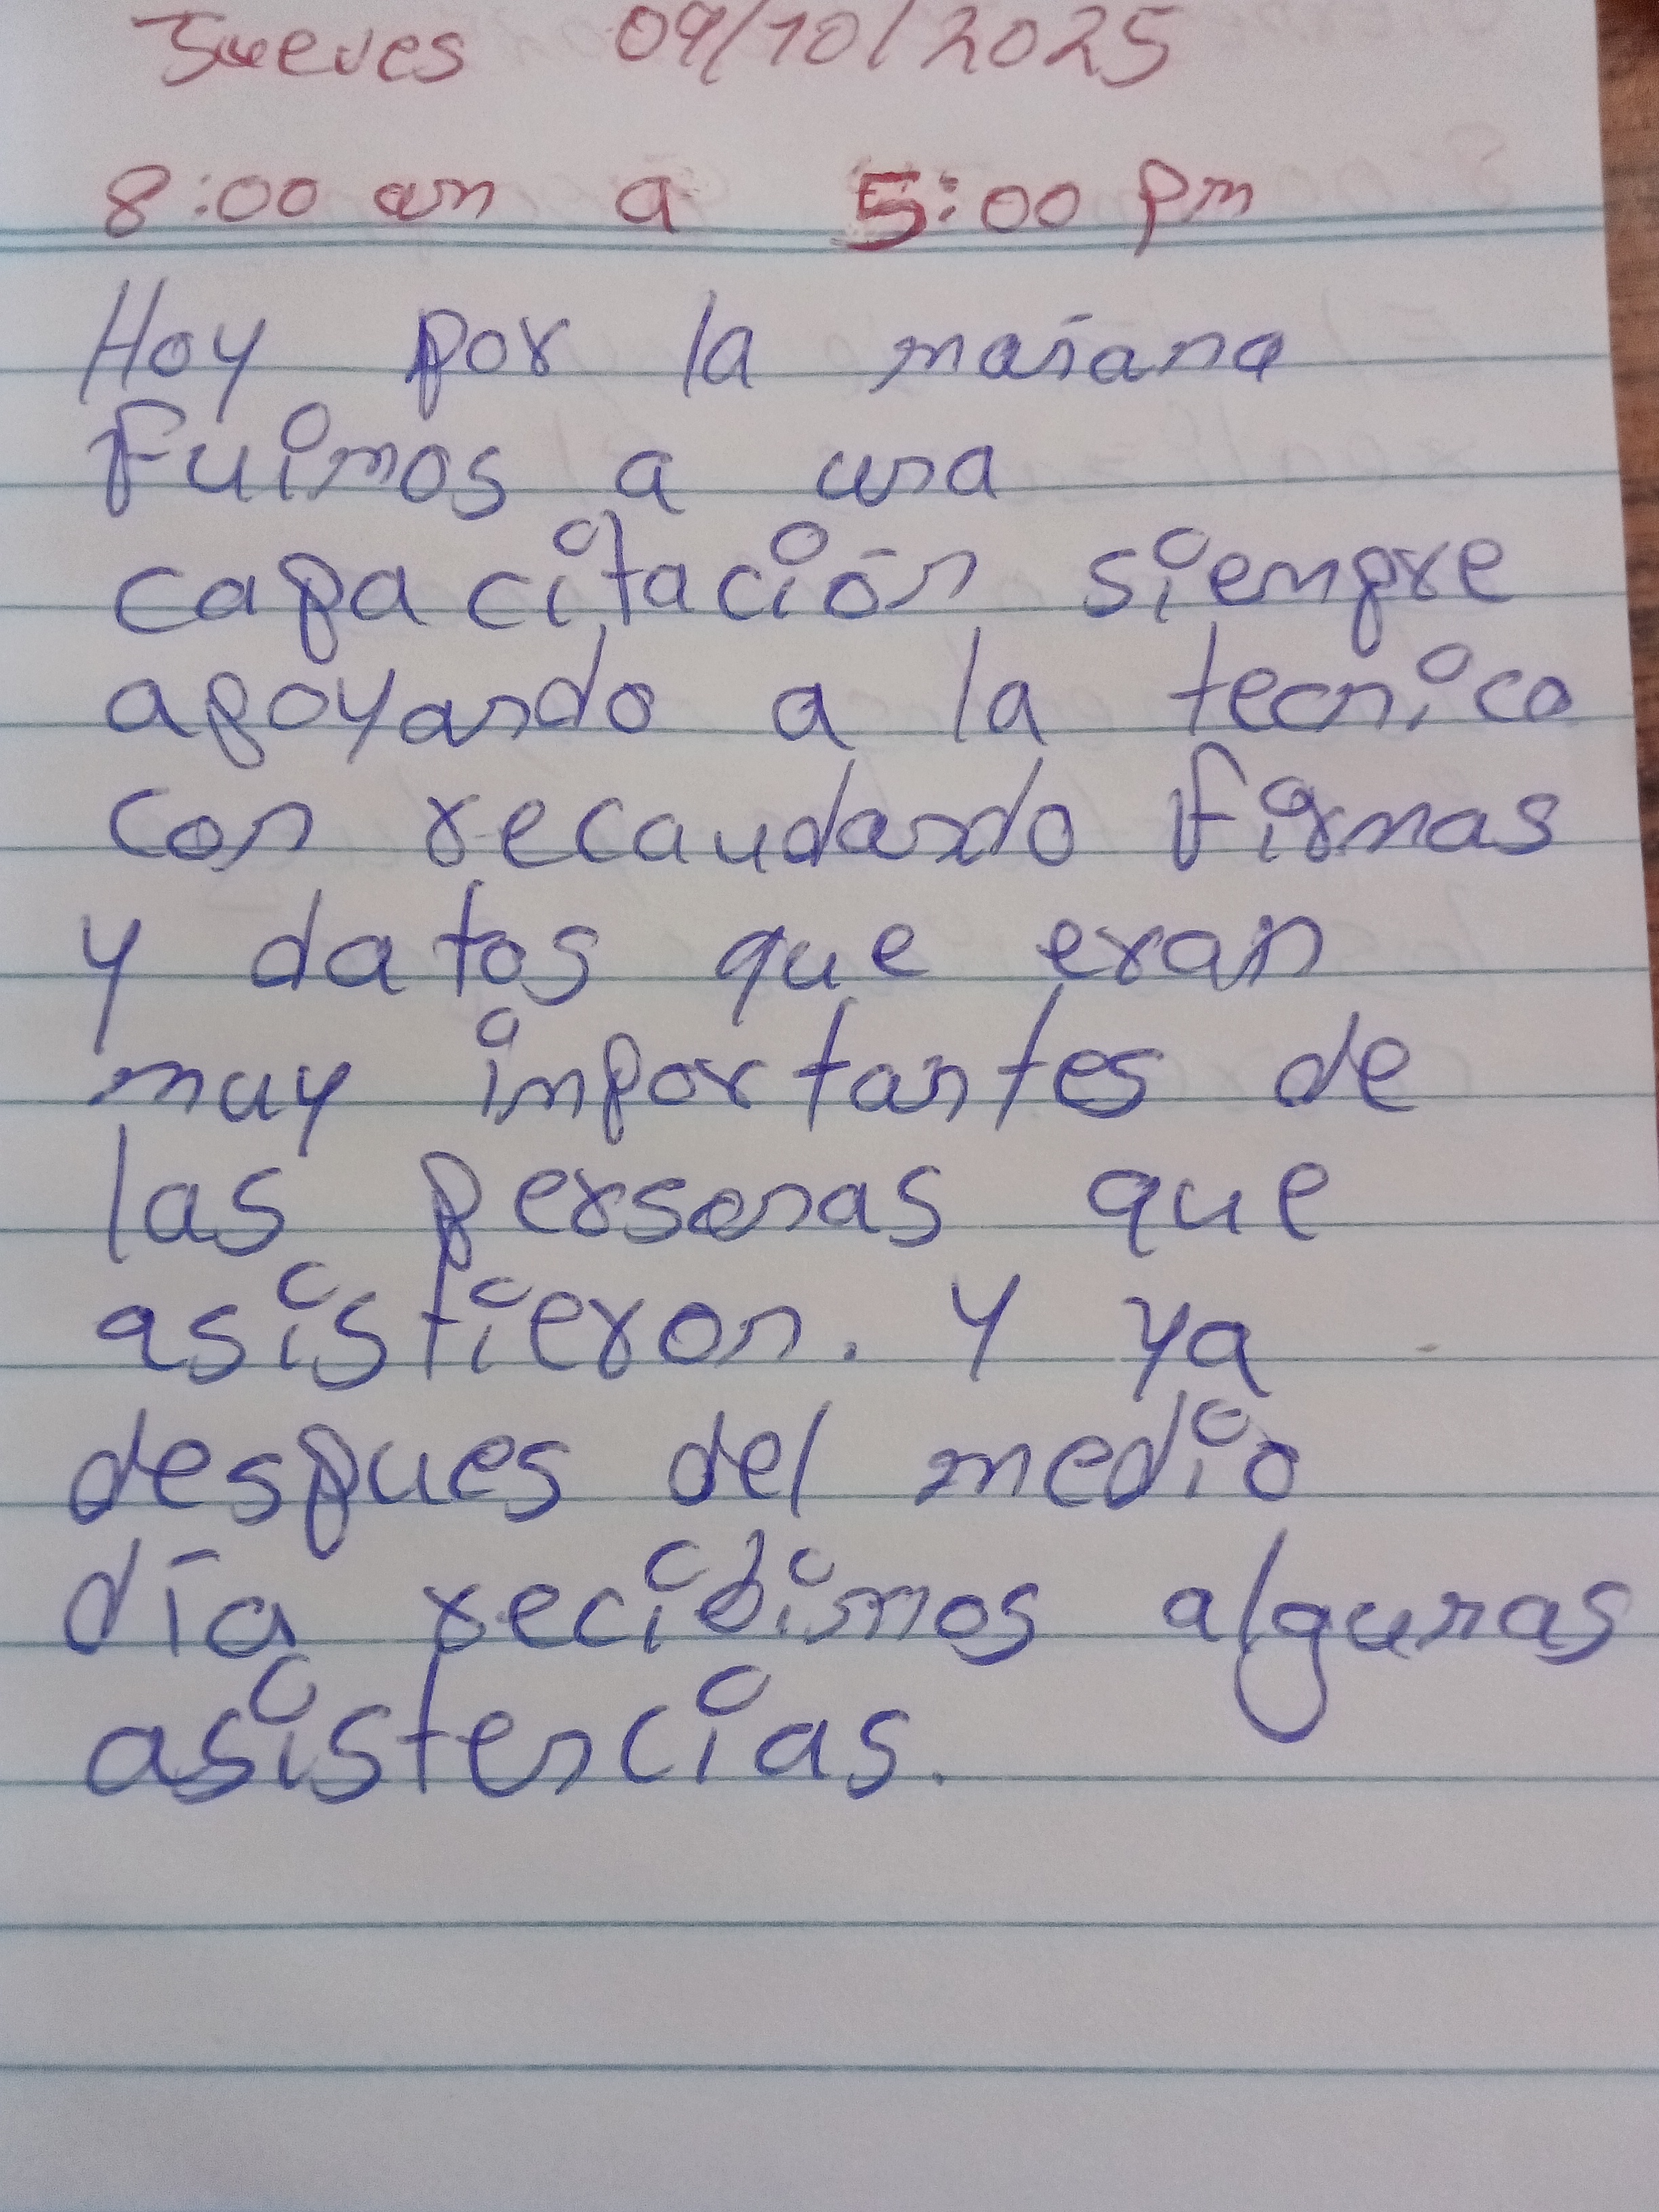 Jueves 09/10/2025
8:00 am a 5:00 pm
Hoy por la mañana
Fuimos a una
capacitación siempre
apoyando a la tecnica
con recaudando firmas
y datos que eran
muy importantes de
las personas que
asistieron. Y ya
despues del medio
día recibimos algunas
asistencias.